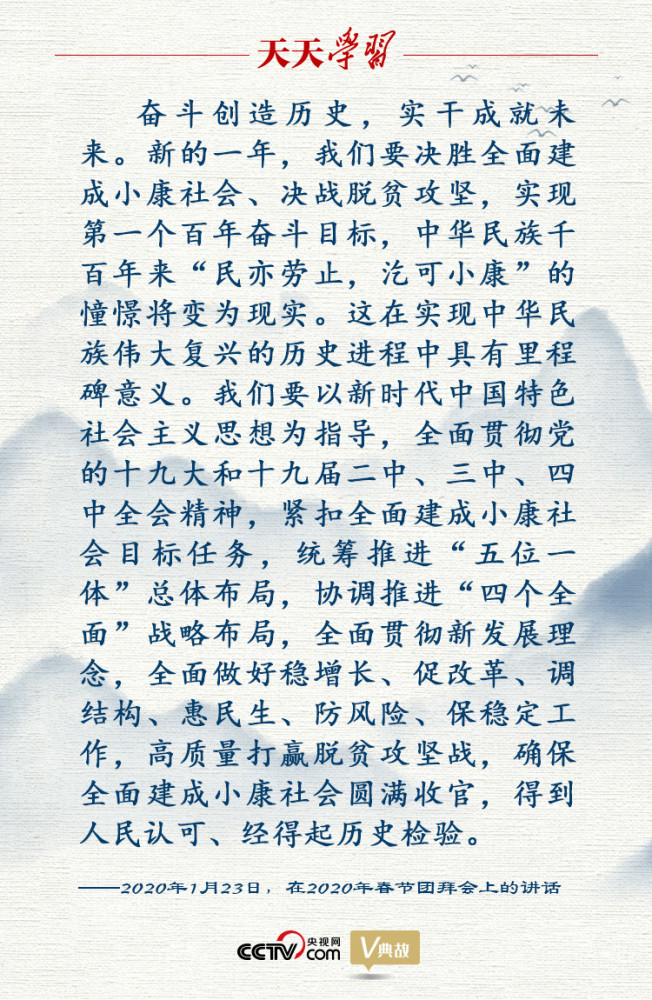 天天學習
奋斗创造历史，实干成就未
来。新的一年，我们要决胜全面建
成小康社会、决战脱贫攻坚，实现
第一个百年奋斗目标，中华民族千
百年来“民亦劳止，汔可小康”的
憧憬将变为现实。这在实现中华民
族伟大复兴的历史进程中具有里程
碑意义。我们要以新时代中国特色
社会主义思想为指导，全面贯彻党
的十九大和十九届二中、三中、四
中全会精神，紧扣全面建成小康社
会目标任务，统筹推进“五位一
体”总体布局，协调推进“四个全
面”战略布局，全面贯彻新发展理
念，全面做好稳增长、促改革、调
结构、惠民生、防风险、保稳定工
作，高质量打赢脱贫攻坚战，确保
全面建成小康社会圆满收官，得到
人民认可、经得起历史检验。
——2020年1月23日，在2020年春节团拜会上的讲话
CCTV 央视网 com V典故